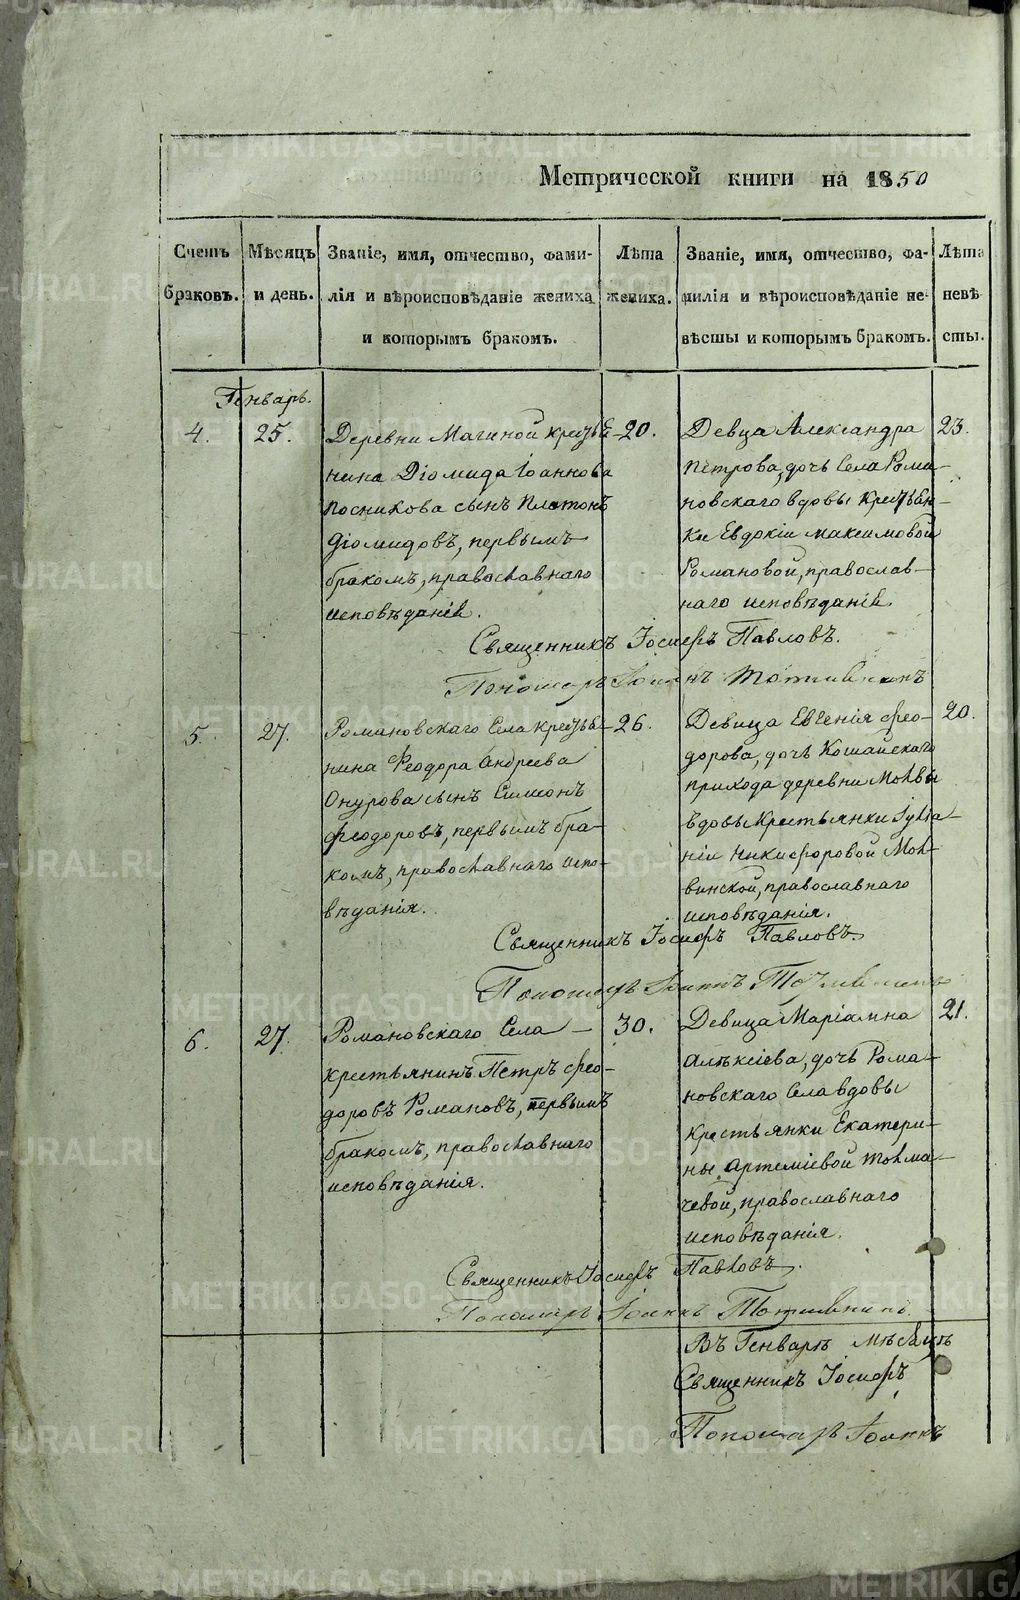 Метрической книги на 1850
Счетъ браковъ.
Мѣсяцъ и день.
Званіе, имя, отчество, фами-
лія и вѣроисповѣданіе жениха
и которымъ бракомъ.
Лѣта жениха.
Званіе, имя, отчество, фа-
милія и вѣроисповѣданіе не-
вѣсты и которымъ бракомъ.
Лѣта невѣ
сты.
Генварь.
4.
25.
Деревни Магиной крестьѣ-
нина Діомида Іоаннова
Посникова сынъ Платонъ
Діомидовъ, первымъ
бракомъ, православнаго
исповѣданія.
20.
Девца Александра
Петрова, дочь Села Рома-
новскаго вдовы крестьян-
ки Евдокіи Максимовой
Романовой, православ-
наго исповѣданія
23.
Священникъ Іосифъ Павловъ.
Пономарь Іоаннъ
5.
27.
Романовскаго Села крестья-
нина Феодора Андреева
Онурова сынъ Симеонъ
Феодоровъ, первымъ бра-
комъ, православнаго испо-
вѣданія.
26.
Девица Евгенія Фео-
дорова, дочь Кошайскаго
прихода деревни Молвы
вдовы крестьянки Іуліа-
ніи Никифоровой Мол-
винской, православнаго
исповѣданія.
20.
Священникъ Іосифъ Павловъ.
Пономарь Іоаннъ
6.
27.
Романовскаго Села
крестьянинъ Петръ Фео-
доровъ Романовъ, первымъ
бракомъ, православнаго
исповѣданія.
30.
Девица Маріамна
Алѣксіева, дочь Рома-
новскаго Села вдовы
крестьянки Екатери-
ны Артеміевой Толма-
чевой, православнаго
исповѣданія.
21.
Священникъ Іосифъ Павловъ.
Пономарь Іоаннъ
Въ Генварѣ мѣсяцѣ
Священникъ Іосифъ
Пономарь Іоаннъ
METRIKI.GASO-URAL.RU